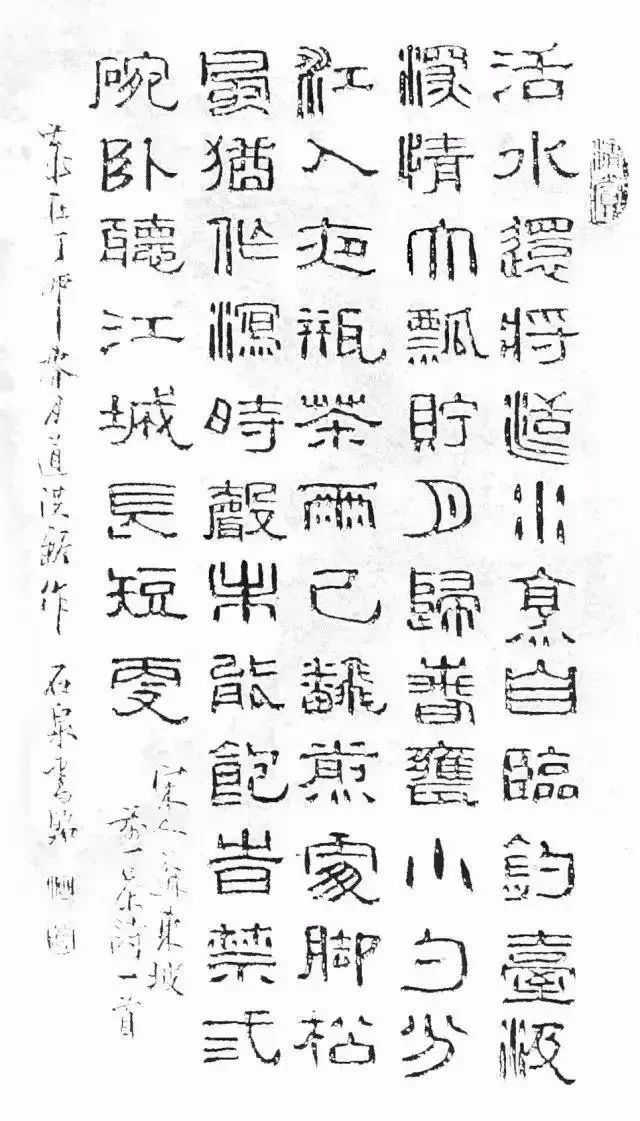 活水還將活火烹自臨釣臺汲
深情大瓢貯月歸春甕小勺分
江入夜瓶茶雨已翻煎處脚松
風猶作瀉時聲未能飽昔禁弍
碗卧聽江城長短更
宋人蘇東坡
茶詩一首
歲在丁酉春月道洪作 石泉書